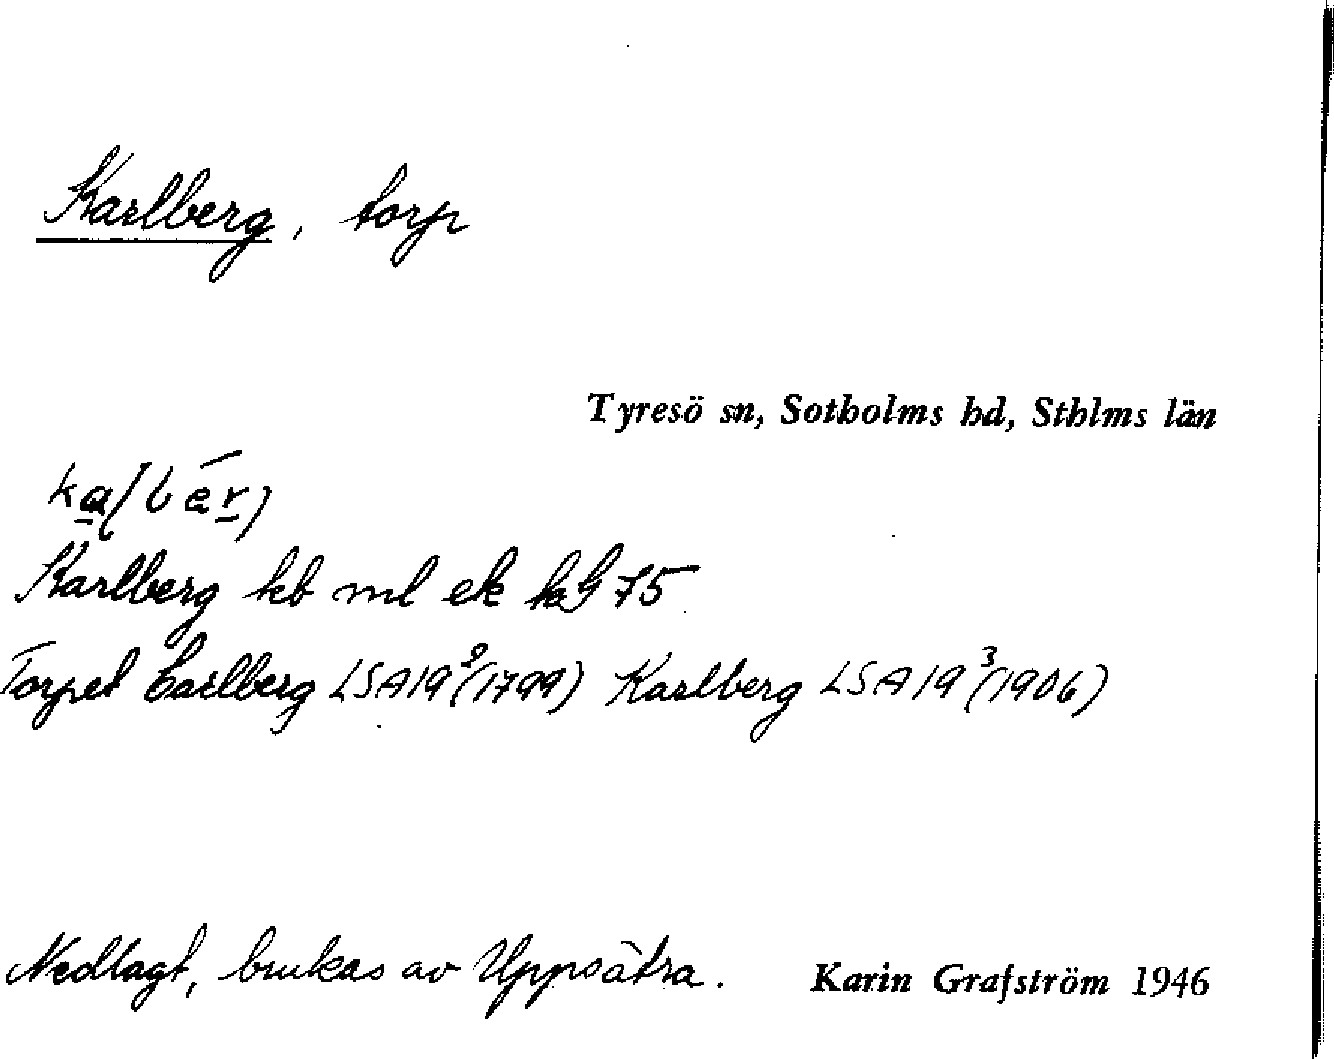 Karlberg, torp
Tyresö sn, Sotholms hd, Sthlms län
Karlberg kb ml ek hG 75
Torpet Carlberg LSA 19⁹(1799) Karlberg LSA 19³(1906)
Nedlagt, brukas av Uppsätra.
Karin Grafström 1946